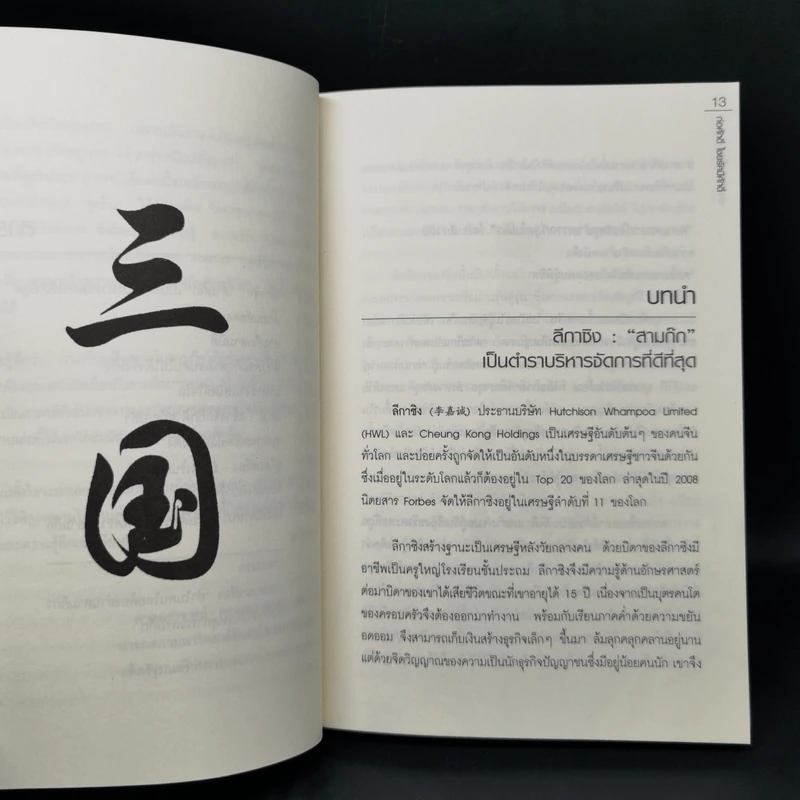 三
国
13
ก่อศักดิ์ ไชยรัศมีศักดิ์
บทนำ
ลีกาชิง : “สามก๊ก”
เป็นตำราบริหารจัดการที่ดีที่สุด
ลีกาชิง (李嘉诚) ประธานบริษัท Hutchison Whampoa Limited
(HWL) และ Cheung Kong Holdings เป็นเศรษฐีอันดับต้นๆ ของคนจีน
ทั่วโลก และบ่อยครั้งถูกจัดให้เป็นอันดับหนึ่งในบรรดาเศรษฐีชาวจีนด้วยกัน
ซึ่งเมื่ออยู่ในระดับโลกแล้วก็ต้องอยู่ใน Top 20 ของโลก ล่าสุดในปี 2008
นิตยสาร Forbes จัดให้ลีกาชิงอยู่ในเศรษฐีลำดับที่ 11 ของโลก
ลีกาชิงสร้างฐานะเป็นเศรษฐีหลังวัยกลางคน ด้วยบิดาของลีกาชิงมี
อาชีพเป็นครูใหญ่โรงเรียนชั้นประถม ลีกาชิงจึงมีความรู้ด้านอักษรศาสตร์
ต่อมาบิดาของเขาได้เสียชีวิตขณะที่เขาอายุได้ 15 ปี เนื่องจากเป็นบุตรคนโต
ของครอบครัวจึงต้องออกมาทำงาน พร้อมกับเรียนภาคค่ำด้วยความขยัน
อดออม จึงสามารถเก็บเงินสร้างธุรกิจเล็กๆ ขึ้นมา ล้มลุกคลุกคลานอยู่นาน
แต่ด้วยจิตวิญญาณของความเป็นนักธุรกิจปัญญาชนซึ่งมีอยู่น้อยคนนัก เขาจึง